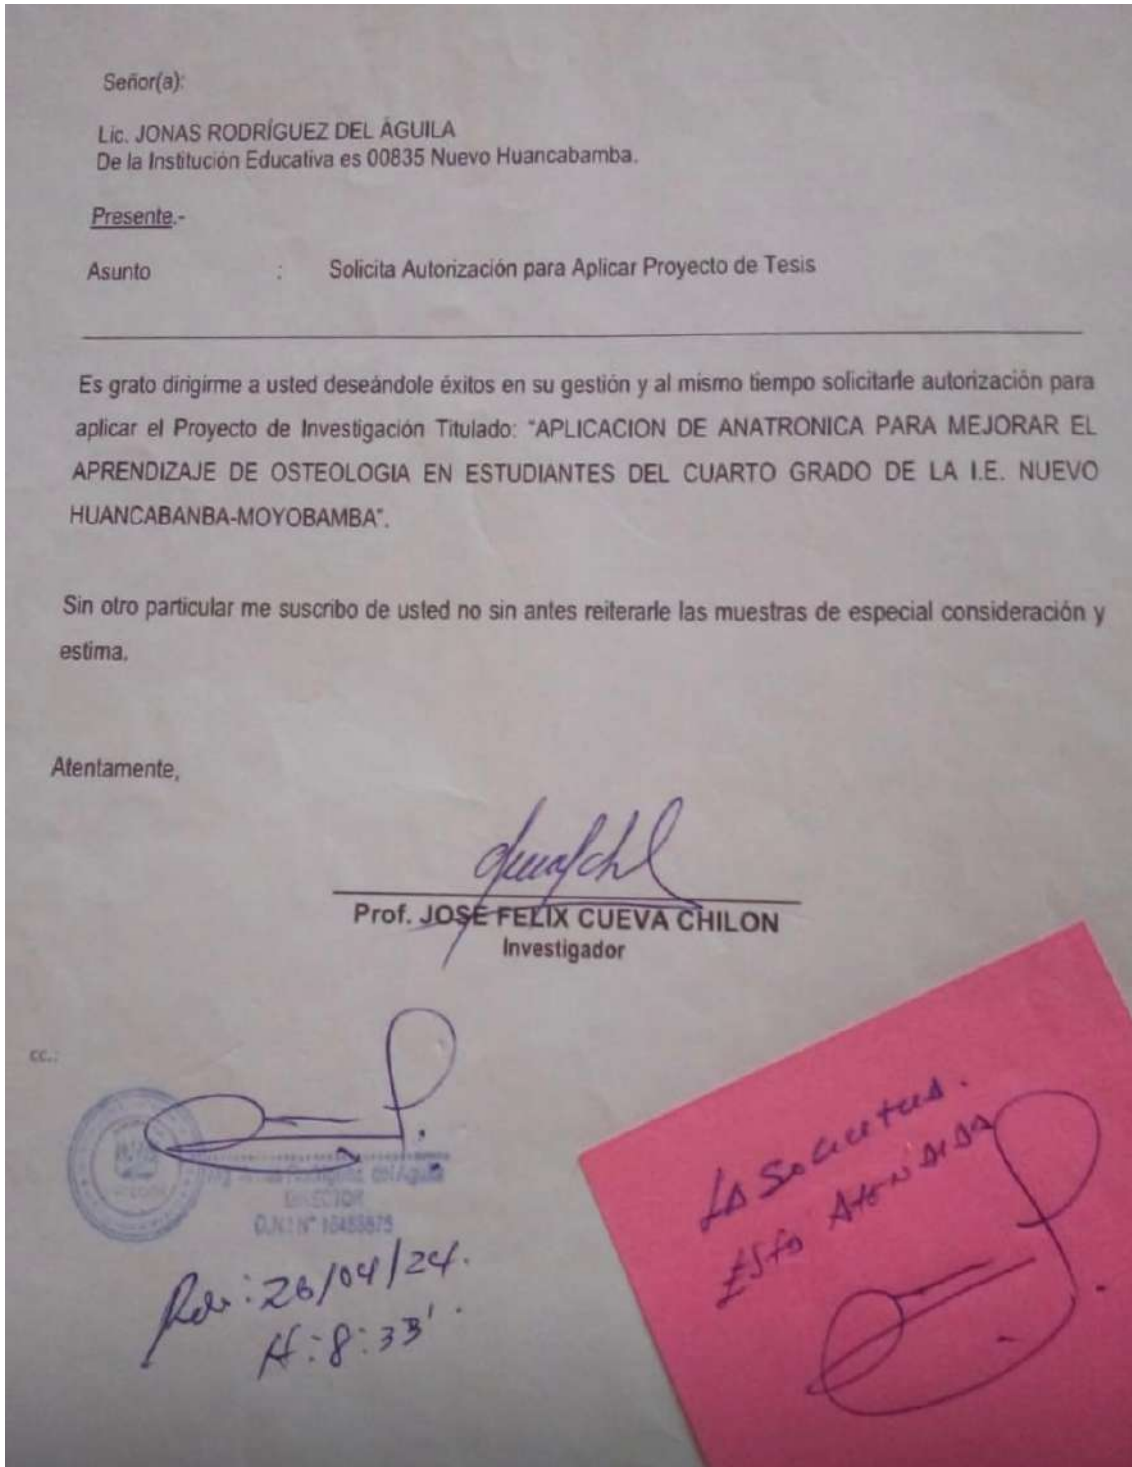 Señor(a):
Lic. JONAS RODRÍGUEZ DEL ÁGUILA
De la Institución Educativa es 00835 Nuevo Huancabamba.
Presente.-
Asunto : Solicita Autorización para Aplicar Proyecto de Tesis
Es grato dirigirme a usted deseándole éxitos en su gestión y al mismo tiempo solicitarle autorización para
aplicar el Proyecto de Investigación Titulado: "APLICACION DE ANATRONICA PARA MEJORAR EL
APRENDIZAJE DE OSTEOLOGIA EN ESTUDIANTES DEL CUARTO GRADO DE LA I.E. NUEVO
HUANCABANBA-MOYOBAMBA".
Sin otro particular me suscribo de usted no sin antes reiterarle las muestras de especial consideración y
estima.
Atentamente,
Prof. JOSE FELIX CUEVA CHILON
Investigador
cc.:
del Aguila
DIRECTOR
D.N.I N°
26/04/24.
H: 8:33'.
LA
ESTA ATENDIDA